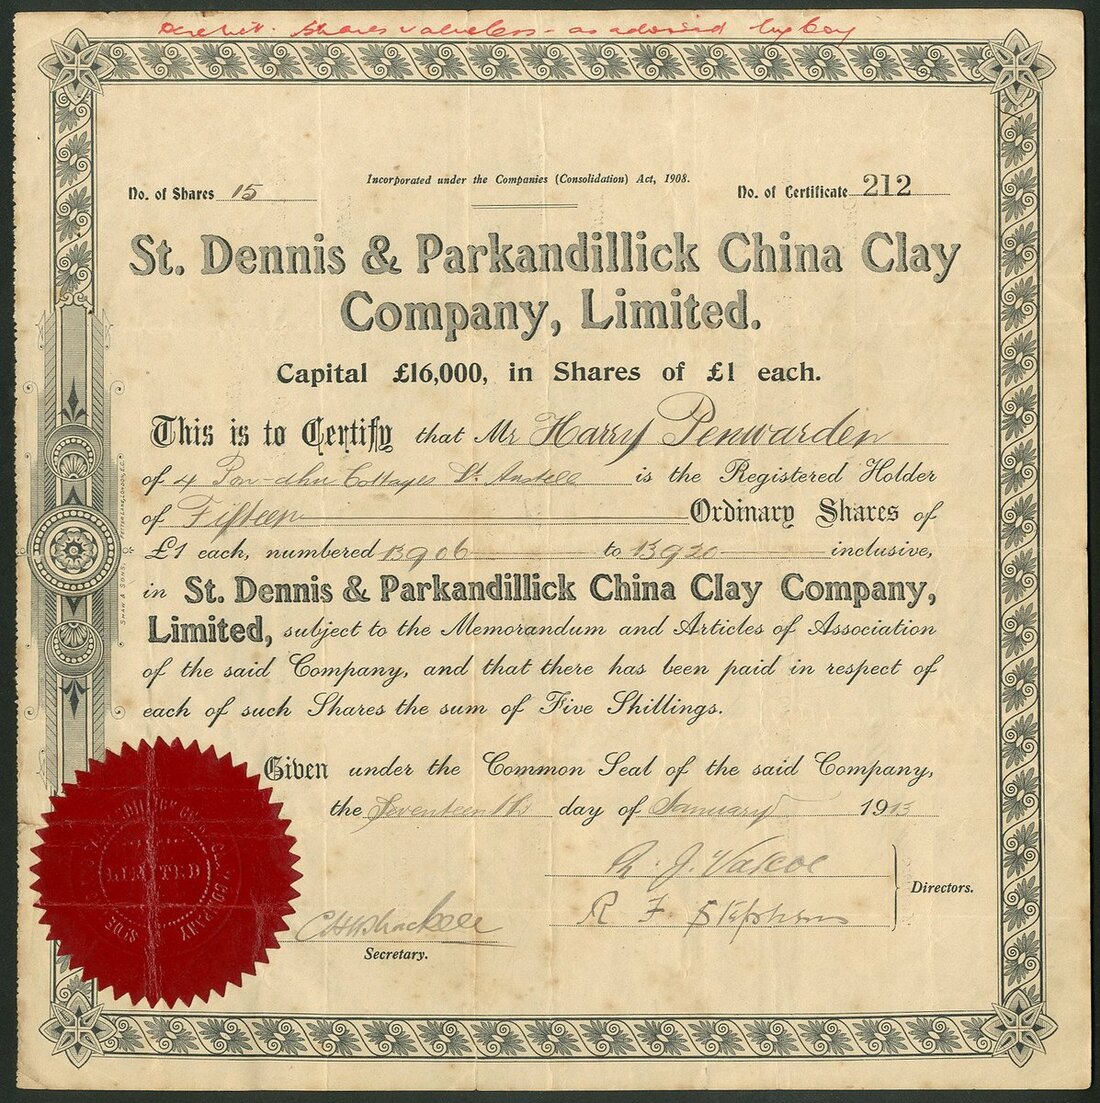 Shares valueless - as advised by
No. of Shares 15
Incorporated under the Companies (Consolidation) Act, 1908.
No. of Certificate 212
St. Dennis & Parkandillick China Clay
Company, Limited.
Capital £16,000, in Shares of £1 each.
This is to Certify that Mr Harry Penwarden
of 4 Cottages St. Austell is the Registered Holder
of Fifteen Ordinary Shares of
£1 each, numbered 13906 to 13920 inclusive,
in St. Dennis & Parkandillick China Clay Company,
Limited, subject to the Memorandum and Articles of Association
of the said Company, and that there has been paid in respect of
each of such Shares the sum of Five Shillings.
Given under the Common Seal of the said Company,
the Seventeenth day of January 1913
R. F. Stephens
Directors.
Secretary.
LIMITED
SHAW & SONS, FETTER LANE, LONDON, E.C.